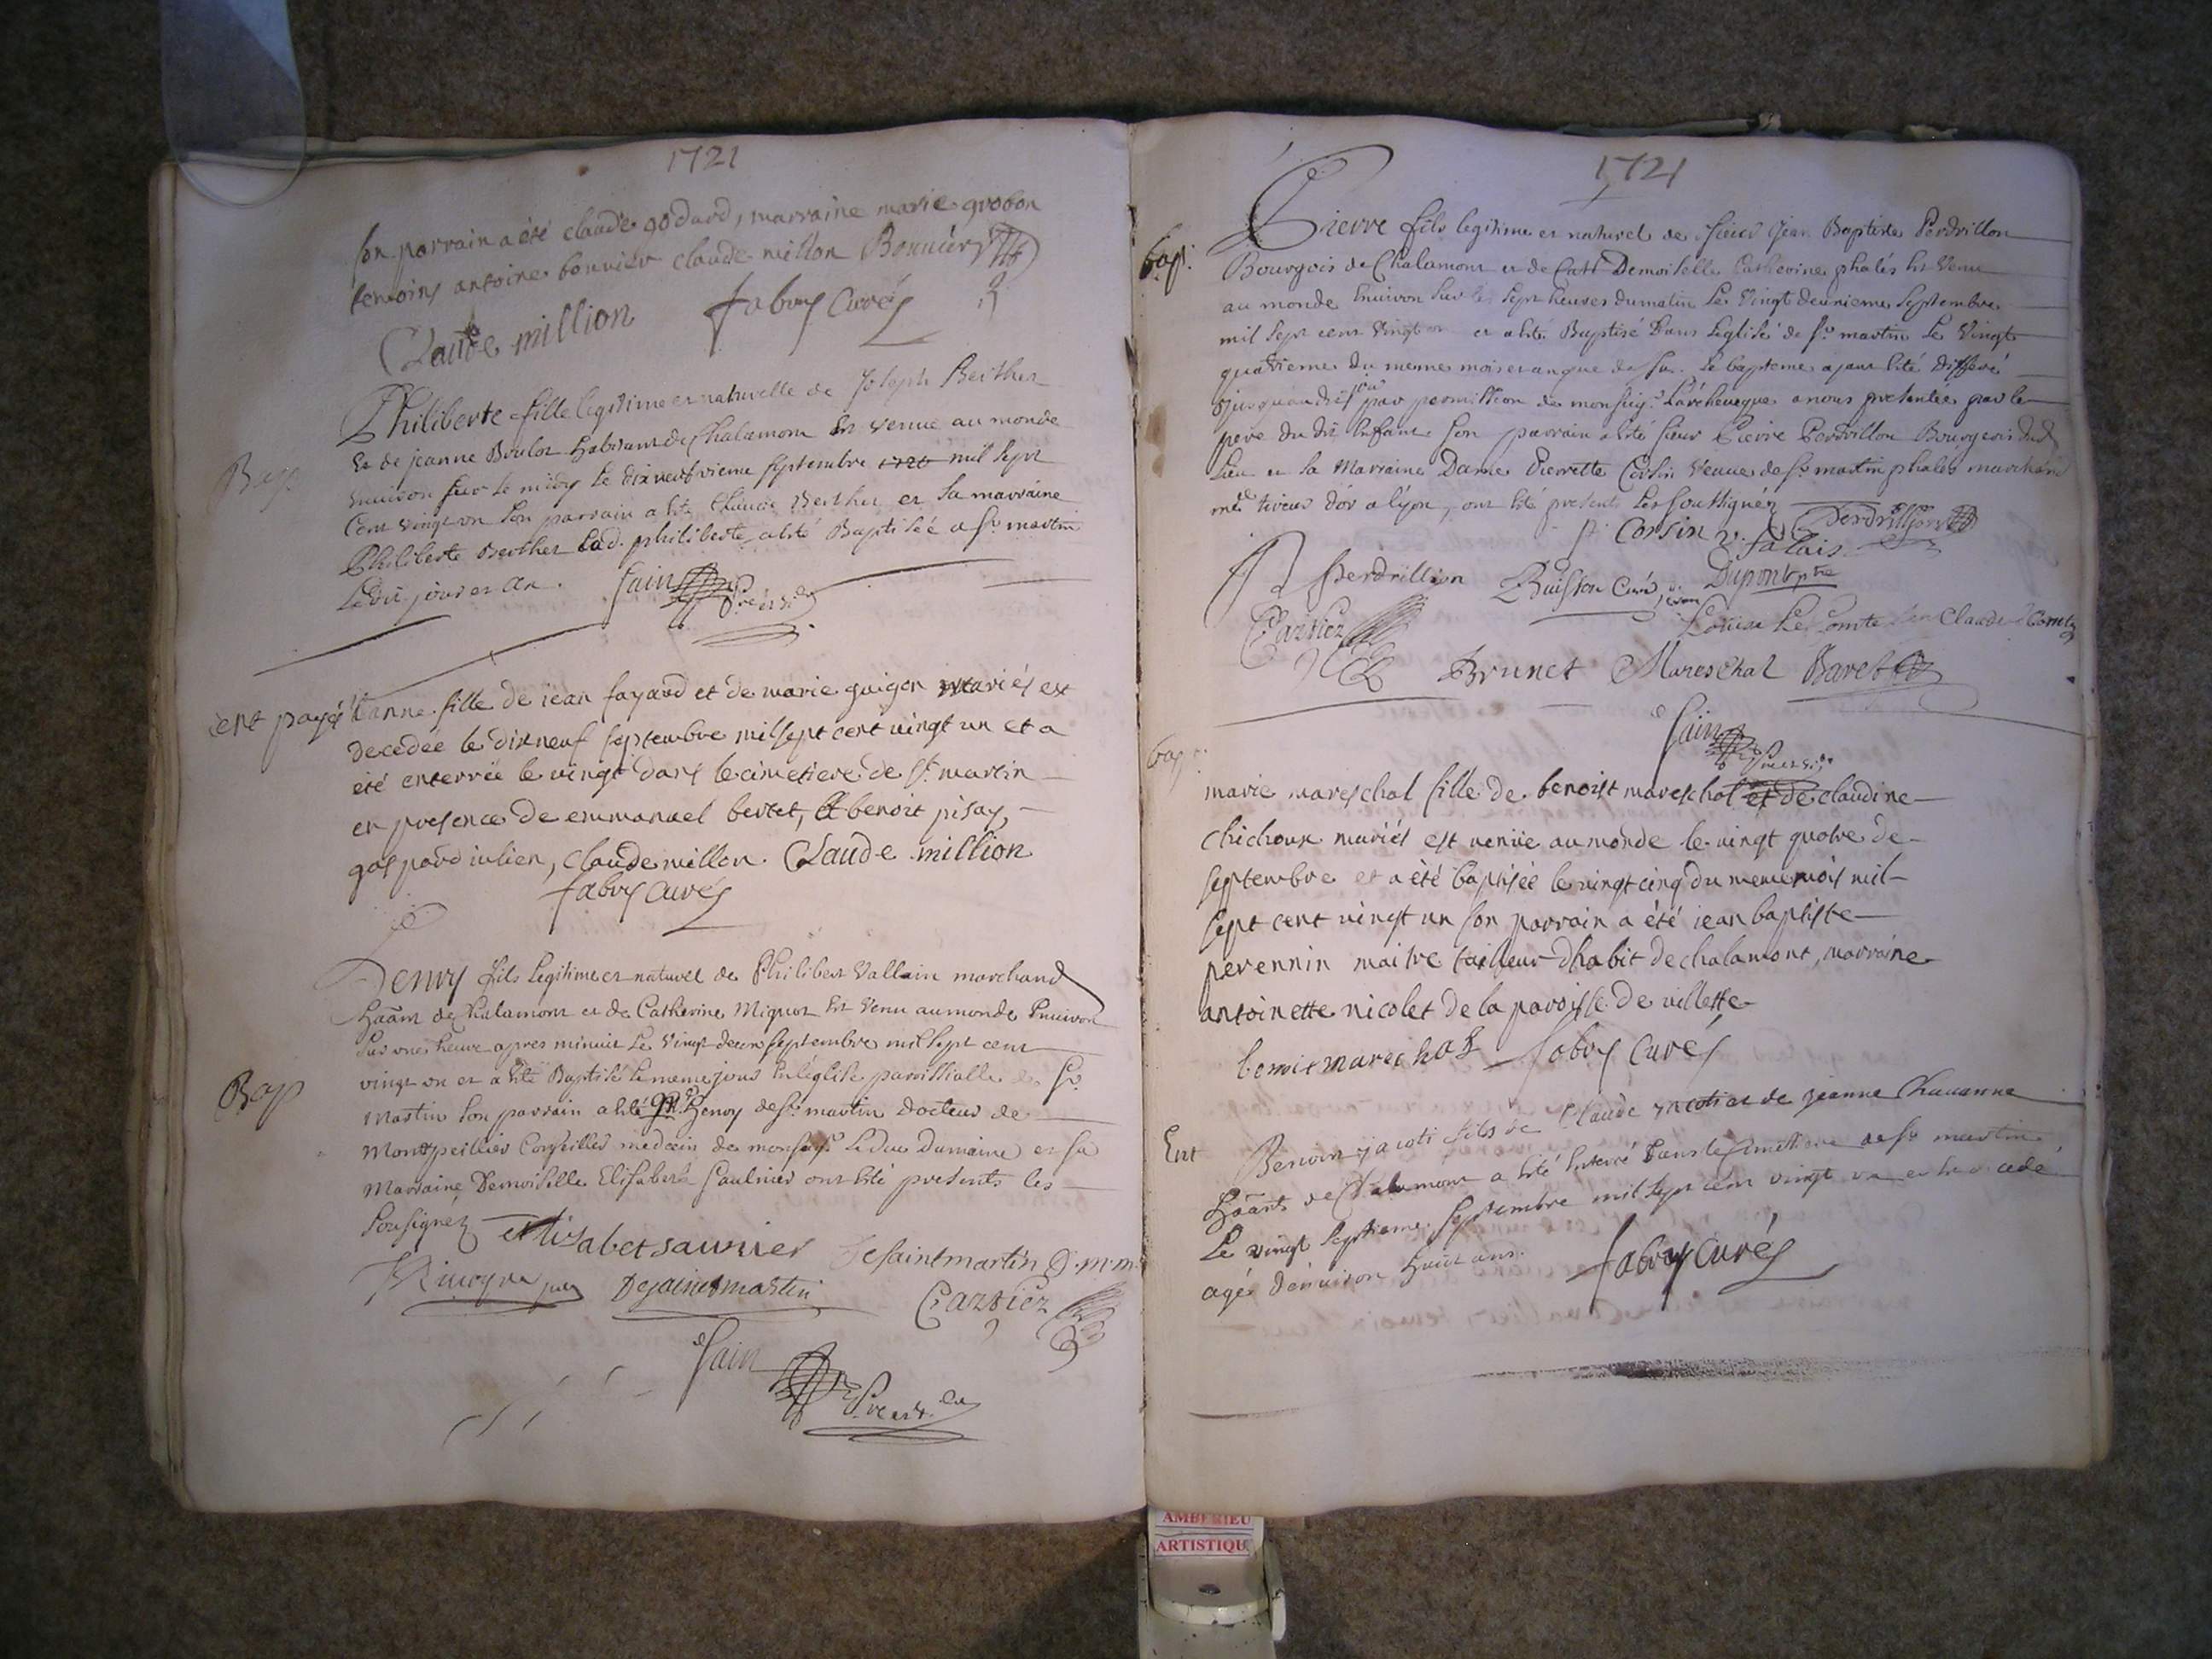 1721
son parrain a été claude godard, marraine marie grobon
temoins antoine bonvier claude millon Bonnier
Claude million fabry Curés
Bap
Philiberte fille legitime et naturelle de Joseph Berther
et de jeanne Boulot habitant de Chalamont est venue au monde
environ sur le midy le dixneufvieme septembre mil sept
Cent vingt un son parrain a été Claude Berther et sa marraine
Philiberte Berther lad. philiberte a été Baptisée a st martin
Ledit jour et an. Sain
ent payé
anne fille de iean fayard et de marie guigon mariés est
decedée le dixneuf septembre mil sept cent vingt un et a
été enterrée le vingt dans le cimetiere de st martin
en presence de emmanuel bertet, et benoit pisay,
gaspard iulien, claude millon. Claude million
fabry curés
Bap
Denry fils legitime et naturel de Philibert Vallain marchand
haãnt de Chalamont et de Catherine Mignot est venu au monde Environ
sur une heure apres minuit le Vingt deux septembre mil sept cent
vingt un et a été Baptisé le meme jour En leglise parroissialle de st
Martin son parrain a été Mr henry de st martin docteur de
Montpeillier Conseiller medecin de monseigr Le duc Dumaine et sa
Marraine Demoiselle Elisabeth Saulnier ont été presents les
sousignez elisabet saunier De saintmartin D.m.m.
Desaintmartin Carriez
Sain
1721
bap.
Pierre fils legitime et naturel de sieur Jean Baptiste Perdrillon
Bourgois de Chalamont et de Demoiselle Catherine phalés est Venu
au monde Environ sur les sept heures du matin le Vingt deuxieme septembre
mil sept cent vingt un et a été Baptisé Dans léglise de st martin le Vingt
quatrieme du meme mois et an que dessus. le bapteme ajant été differé
jusquaudit jour par permission de monseigr Larcheveque a nous presentée par le
pere du dit Enfant son parrain a été sieur Pierre Perdrillon Bourgeois dud
Lieu et sa Marraine Dame Pierrette Corsin Veuve de sr martin phales marchand
me tireur d'or a lyon, ont été presents Les soussignéz
Corsin v. falais Perdrillion
Perdrillion Buisson Curé Dupont ptre
Carriez Louise Le Comte Claude Comte
Brunet Mareschal Baret
Sain
bap.
marie mareschal fille de benoist mareschal et de claudine
chichoux mariés est venüe au monde le vingt quatre de
septembre et a été baptisée le vingt cinq du meme mois mil
sept cent vingt un son parrain a été iean baptiste
perennin maitre tailleur dhabit de chalamont, marraine
antoinette nicolet de la paroisse de villette
benoit marechal fabry Curés
Ent
Benoin jacoti fils de Claude jacoti et de jeanne Chavanne
haãnts de Chalamont a été Enterré Dans le Cimettiere de st martin
Le vingt septieme septembre mil sept cent vingt un et est decedé
agé denviron huit ans. fabry curés
AMBERIEU
ARTISTIQU